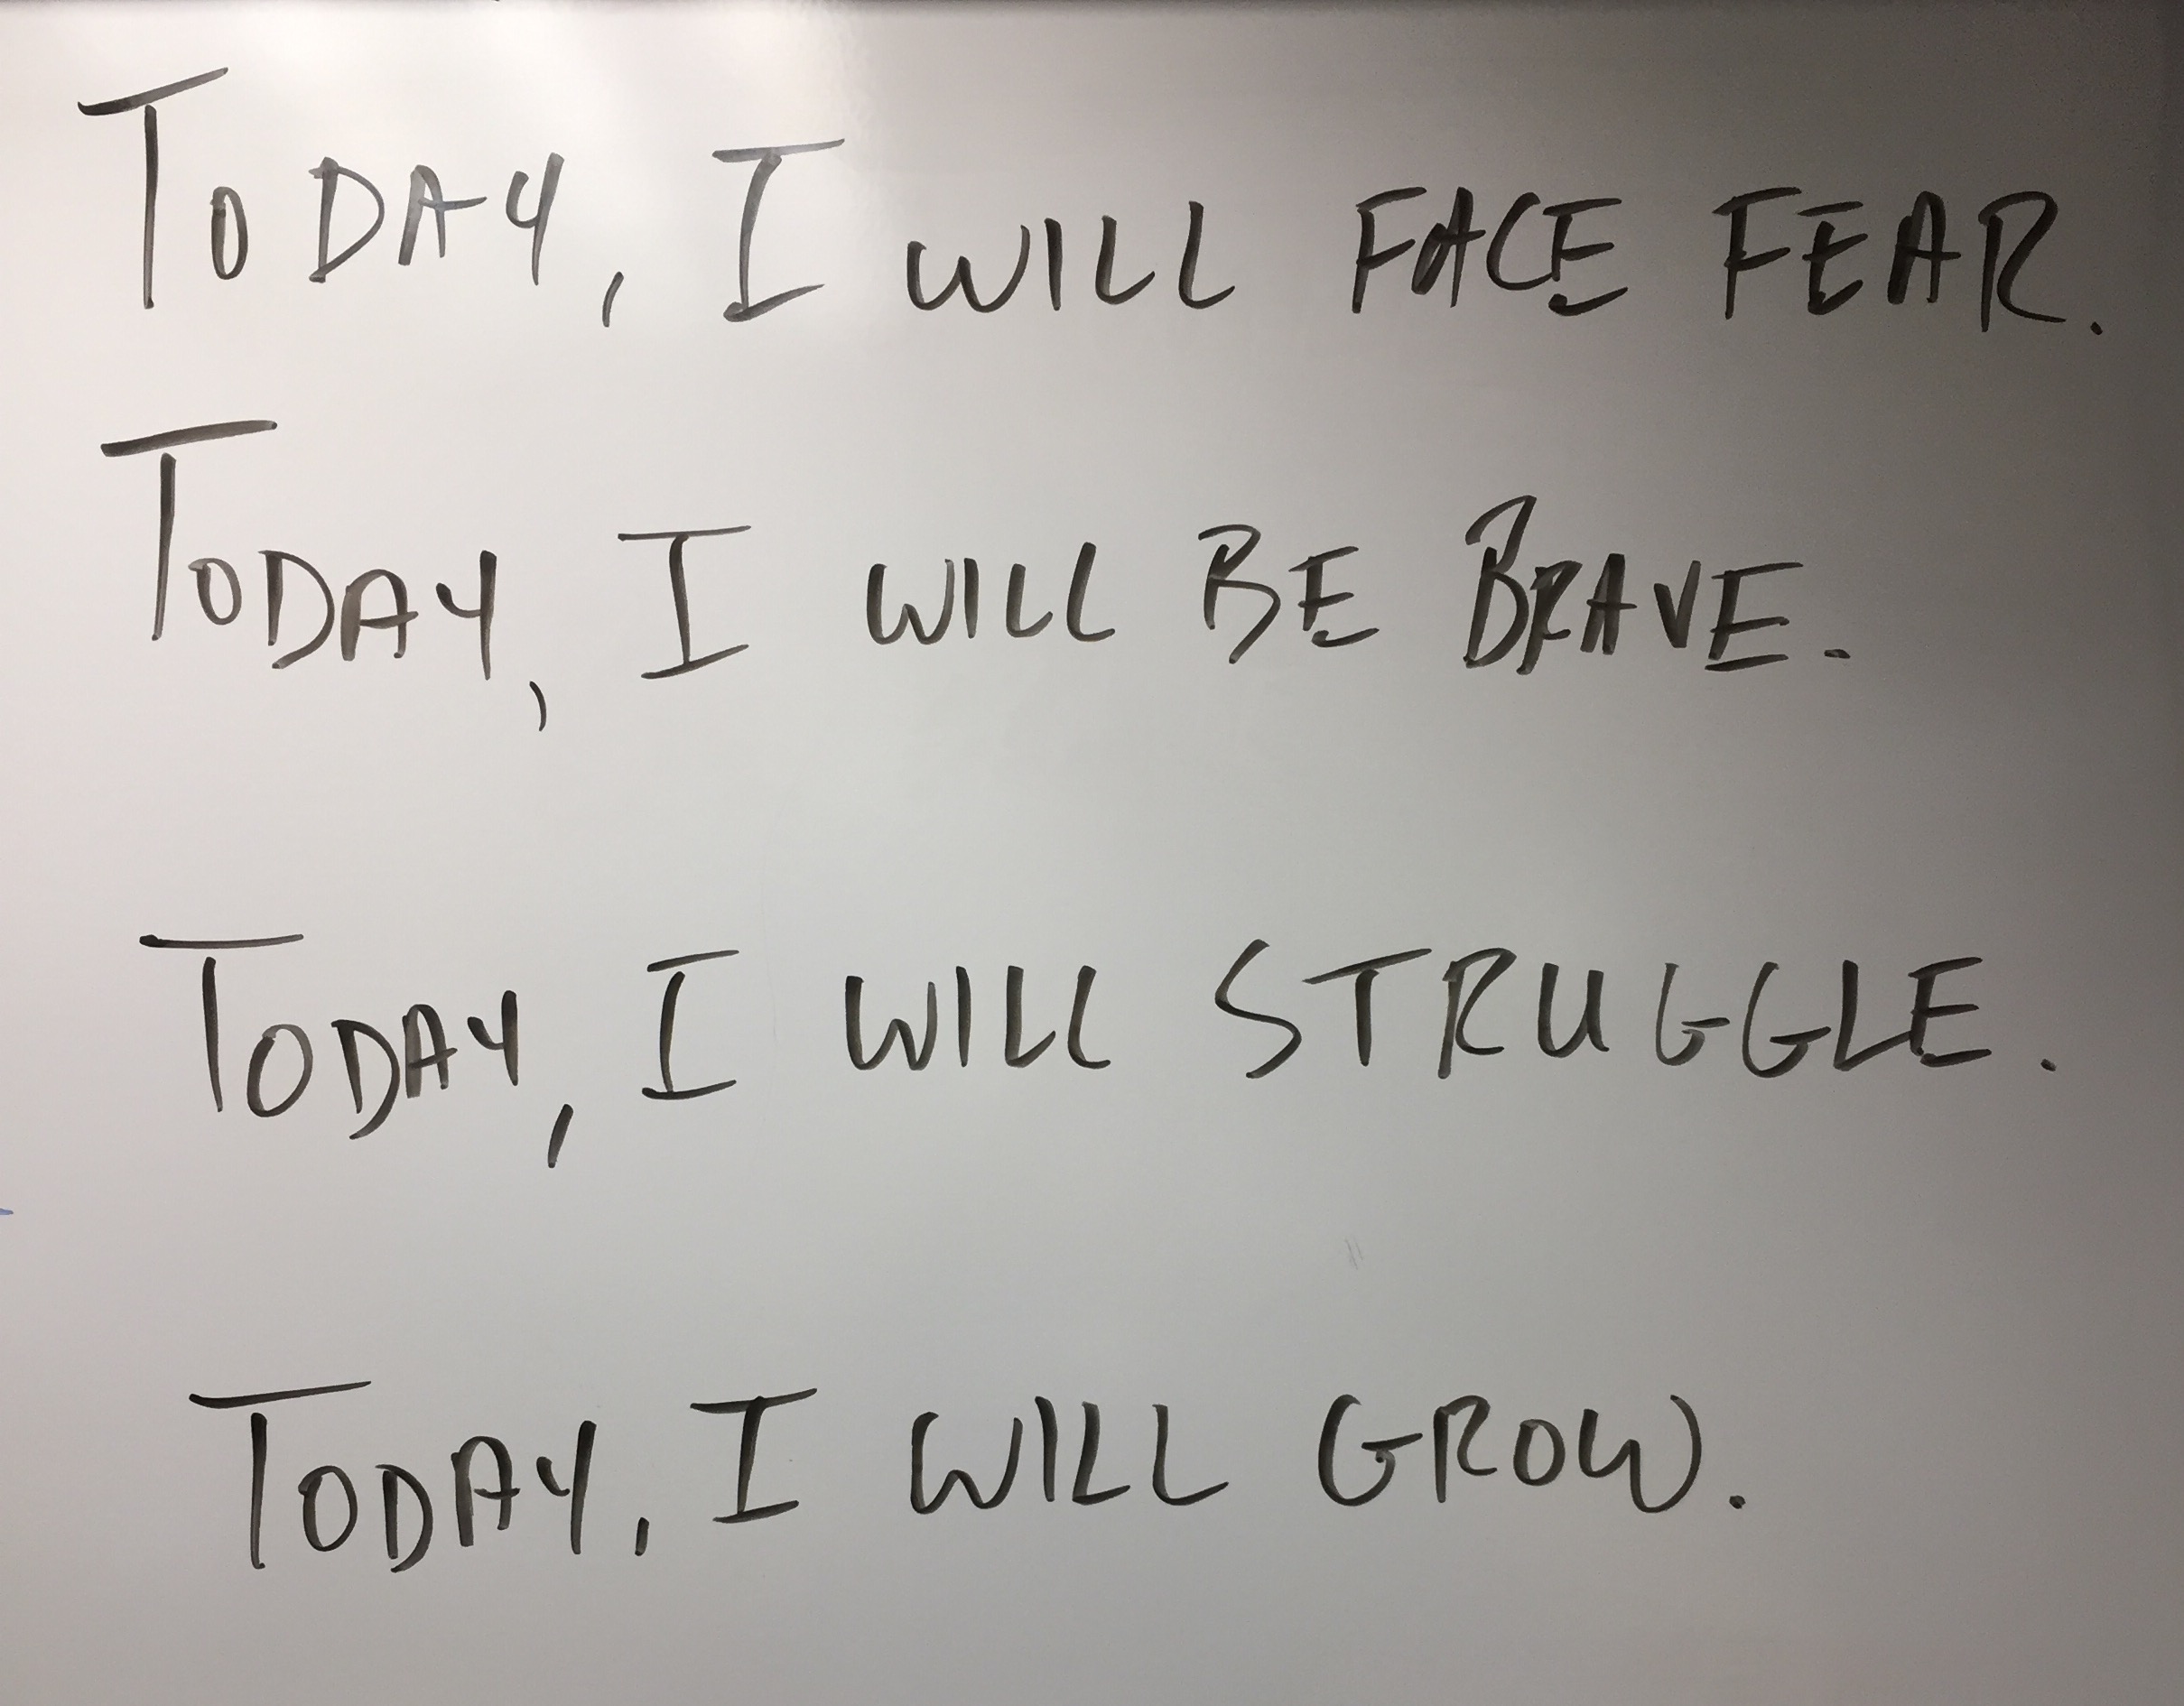 TODAY, I WILL FACE FEAR.
TODAY, I WILL BE BRAVE.
TODAY, I WILL STRUGGLE.
TODAY, I WILL GROW.